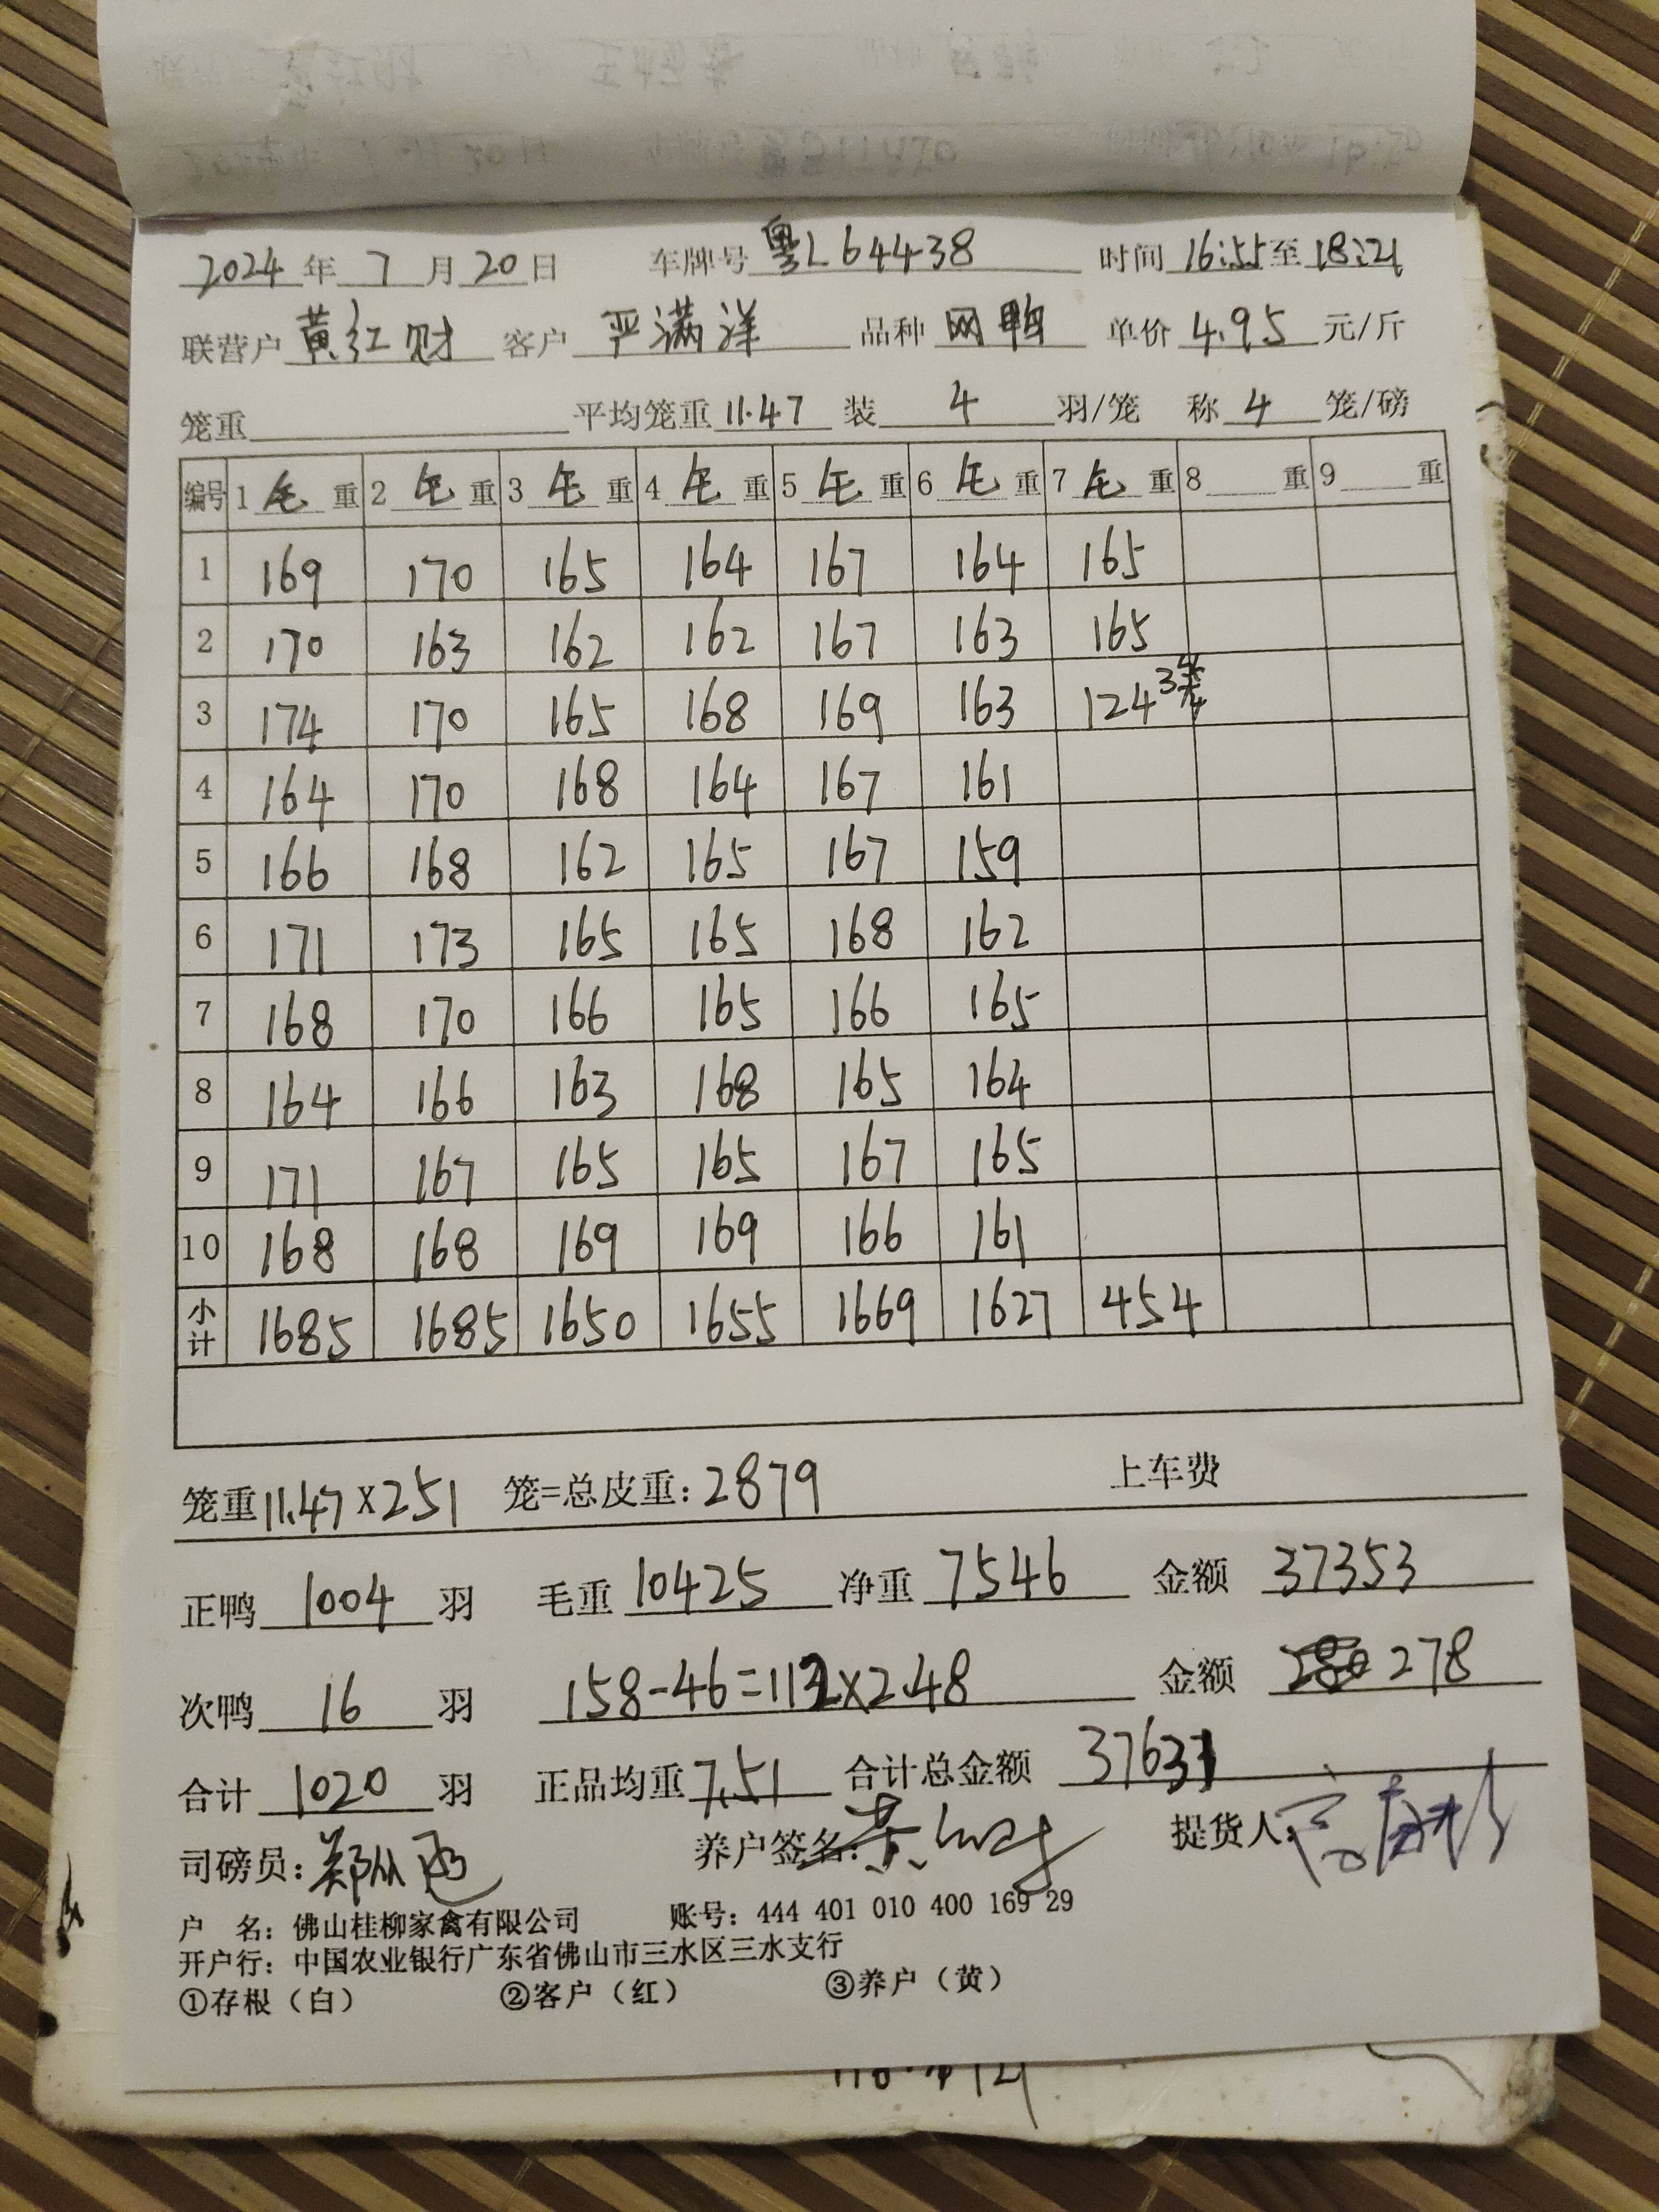 2024年7月20日 车牌号粤L64438 时间16:55至18:21
联营户黄红财 客户严满洋 品种网鸭 单价4.95元/斤
笼重 平均笼重11.47 装4羽/笼 称4笼/磅
编号 1毛重 2毛重 3毛重 4毛重 5毛重 6毛重 7毛重 8重 9重
1 169 170 165 164 167 164 165
2 170 163 162 162 167 163 165
3 174 170 165 168 169 163 124 3
4 164 170 168 164 167 161
5 166 168 162 165 167 159
6 171 173 165 165 168 162
7 168 170 166 165 166 165
8 164 166 163 168 165 164
9 171 167 165 165 167 165
10 168 168 169 169 166 161
小计 1685 1685 1650 1655 1669 1627 454
笼重11.47×251 笼=总皮重:2879 上车费
正鸭1004羽 毛重10425 净重7546 金额37353
次鸭16羽 158-46=112×2.48 金额278
合计1020羽 正品均重7.51 合计总金额37631
司磅员: 养户签名: 提货人:
户 名:佛山桂柳家禽有限公司 账号:444 401 010 400 169 29
开户行:中国农业银行广东省佛山市三水区三水支行
①存根(白) ②客户(红) ③养户(黄)